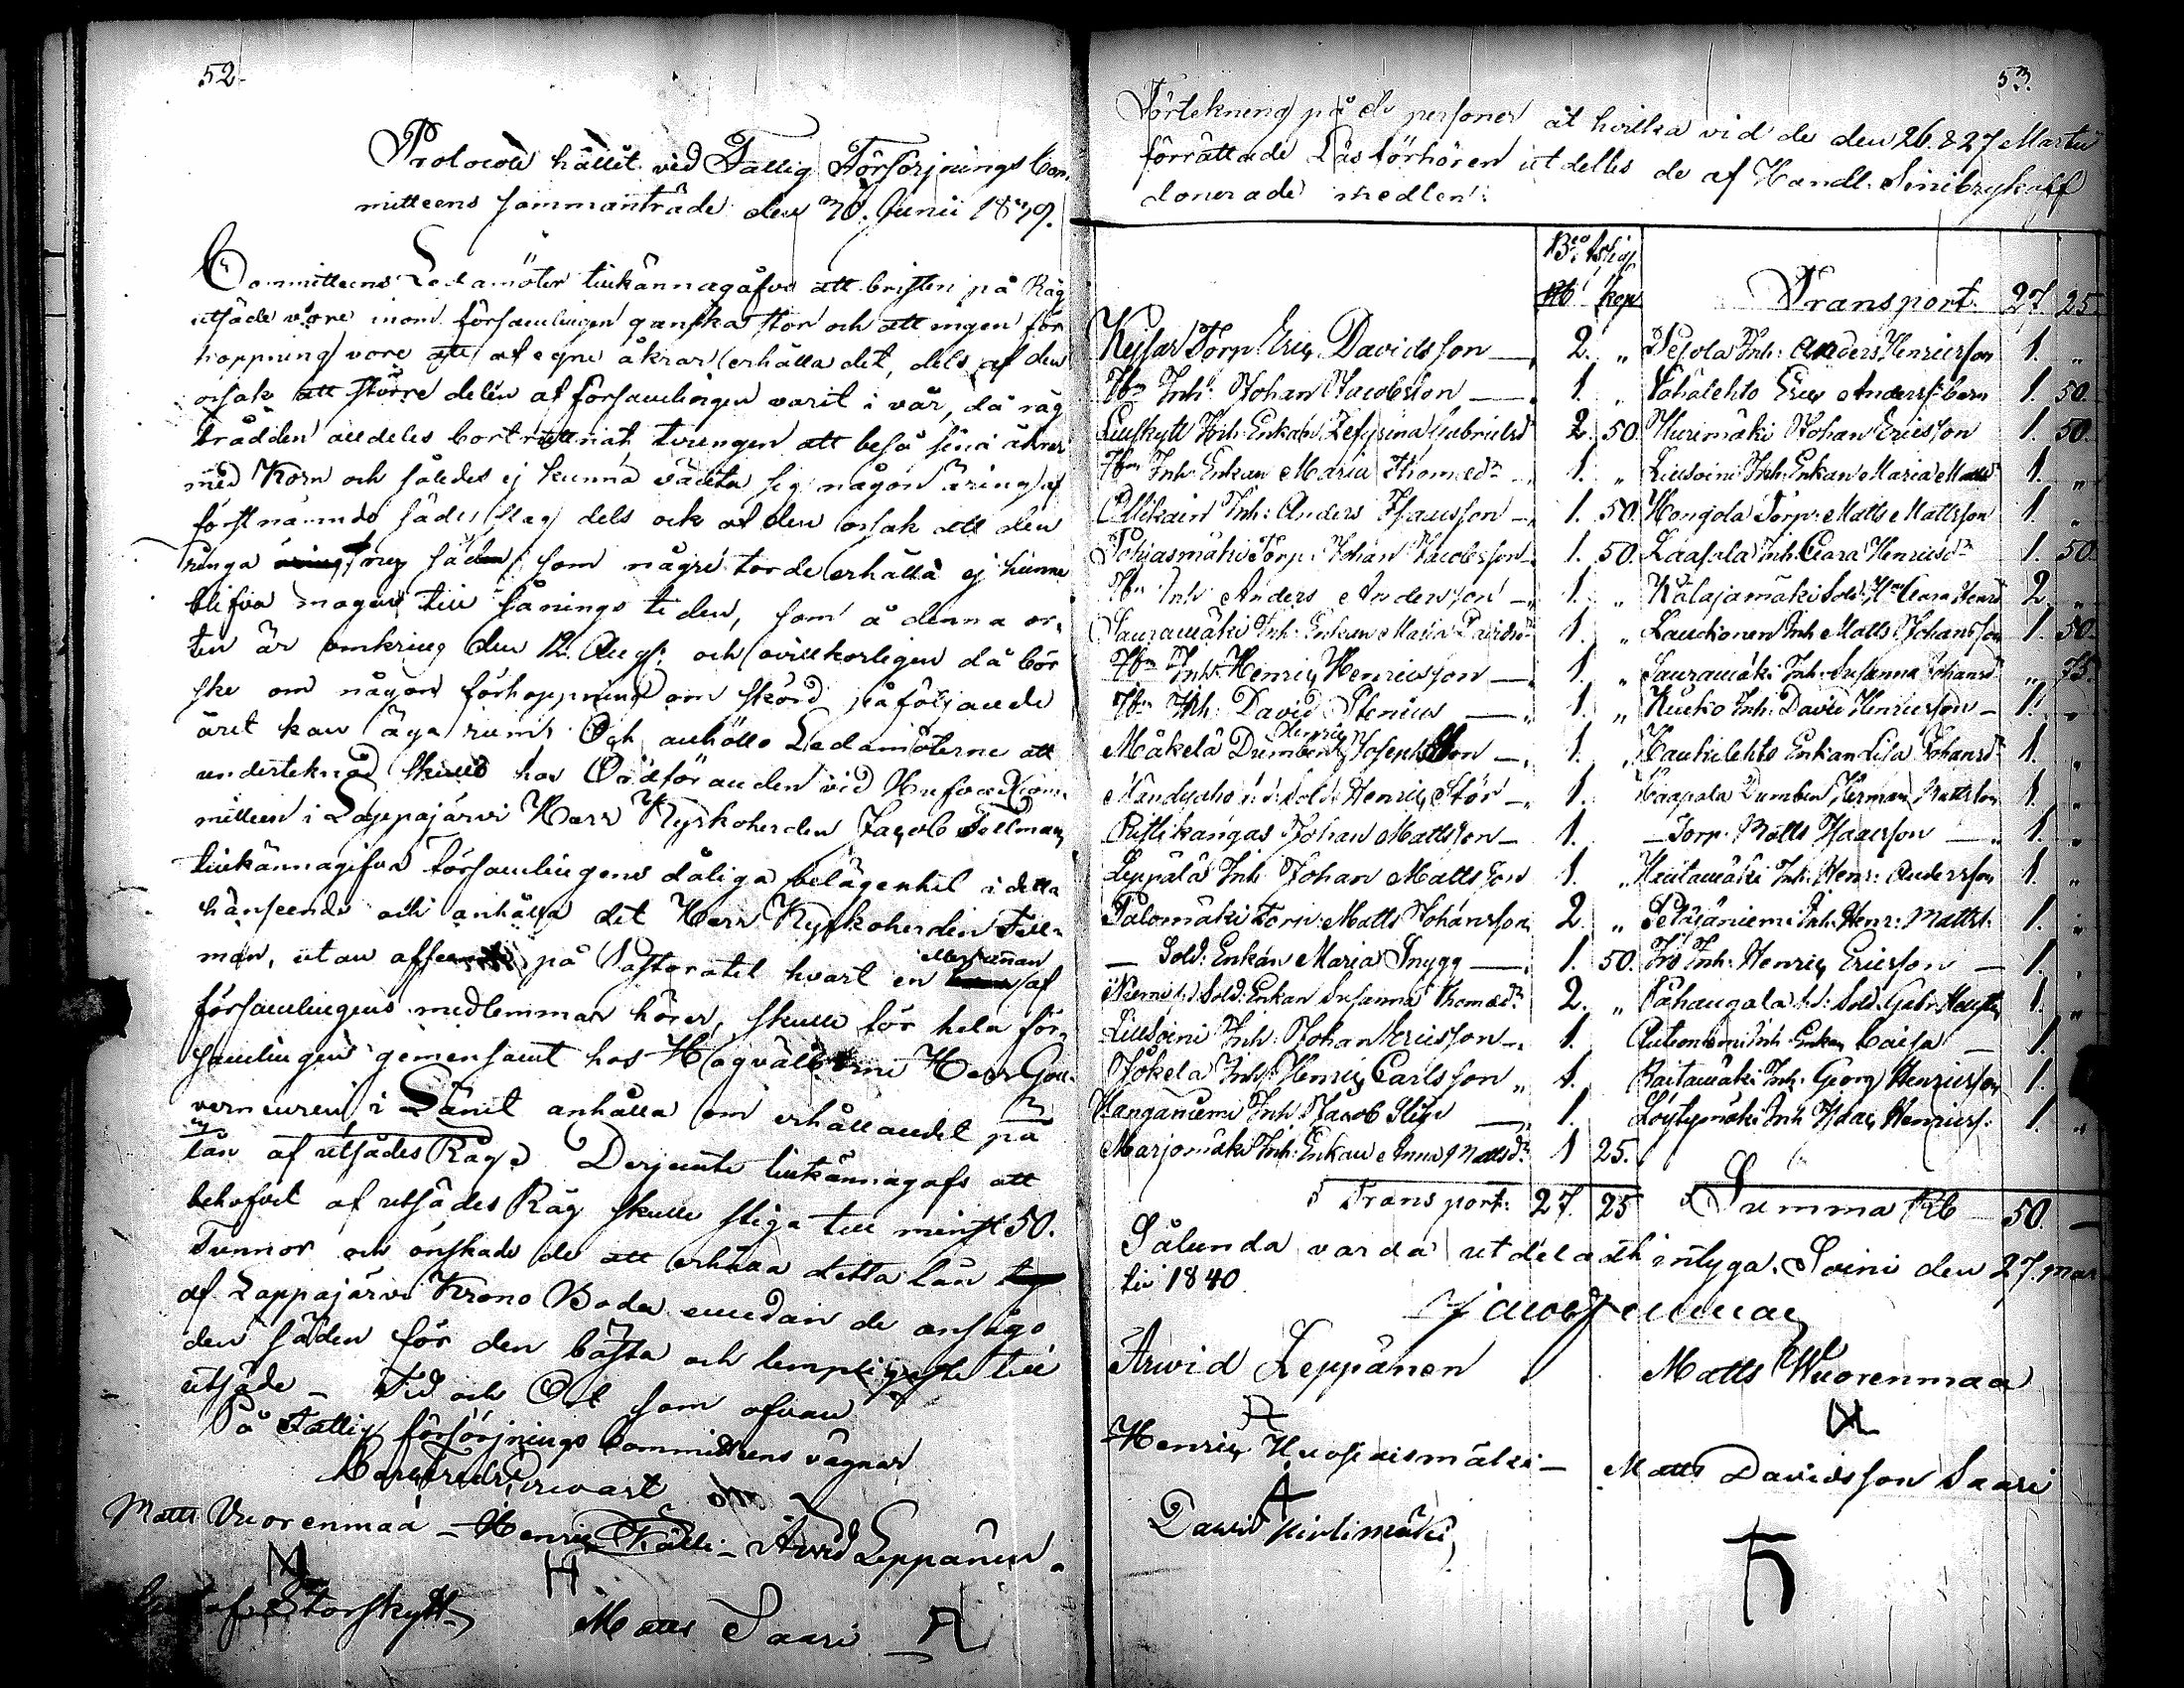 52.
Protocoll hållit vid Fattig Försörjnings Com-
mitteens sammanträde den 30. Junii 1839.
Committeens Ledamöter tillkännagåfvo att bristen på Råg
utsäde vore inom församlingen ganska stor och att ingen för
hoppning vore att af egne åkrar erhålla det, dels af den
orsak att större delen af församlingen varit i vår, då råg
brådden alldeles bortruttnat, tvungen att beså sina åkrar
med Korn och således ej kunna vänta sig någon äring af
förstnämnde sädesslag dels ock af den orsak att den
ringa råg säd som någre torde erhålla ej hinner
blifva mogen till såningstiden, som å denna or-
ten är omkring den 12. Aug: och ovillkorligen då bör
ske om någon förhoppning om skörd påföljande
året kan äga rum. Och anhöllo Ledamöterne att
undertecknad skulle hos Ordföranden vid Hufvud Com-
mitteen i Lappajärvi Herr Kyrkoherden Jacob Fellman
tillkännagifva församlingens dåliga belägenhet i detta
hänseende och anhålla det Herr Kyrkoherden Fell-
man, utan afseende på Pastoratet hvart en eller annan af
församlingens medlemmar hörer, skulle för hela för-
samlingen gemensamt hos Högvälborne Herr Gou-
verneuren i Länet anhålla om erhållandet på
lån af utsädes Råg. Derjemte tillkännagafs att
behofvet af utsädes Råg skulle stiga till minst 50.
Tunnor och önskade de att erhålla detta lån
af Lappajärvi Krono Boda emedan de ansågo
den säden för den bästa och lempligaste till
utsäde _ Tid och Ort som ofvan
På Fattig försörjnings Committeens vägnar
Matts Vuorenmaa _ Henric Källi _ Arvid Leppänen.
Storskytt
Matts Saari
53.
Förtekning på de personer åt hvilka vid de den 26. & 27 Martii
förrättade Läsförhören utdeltes de af Handl. Sinebrykoff
donerade medlen:
Bco Assign.
Rb kop
Keisar Torp. Eric Davidsson — 2. „
Ibm Inh: Johan Jacobsson — 1. „
Lillskytt Inh. Enkan Zefyrina Gabrielsd 2. 50.
Ibm Inh: Enkan Maria Thomædr 1. „
Ollikain Inh: Anders Isacsson — 1. 50.
Pohjasmäki Torp: Johan Jacobsson 1. 50.
Ibm Inh Anders Andersson — 1. „
Sauramäki Inh: Enkan Maria Davidsdr 1. „
Ibm Inh: Henric Henricsson — 1. „
Ibm Inh: David Stenius — 1. „
Mäkelä Dumben Henric Josephsson — 1. „
Henric Stör — 1. „
Johan Mattsson — 1.
Leppälä Inh Johan Mattsson 1. „
Palomäki Torp: Matts Johansson 2. „
— Sold: Enkan Maria Snygg — 1. 50.
Niemi Sold: Enkan Susanna Thomædr 2. „
Lillsoini Inh: Johan Ericsson — 1.
Jokela Inh: Henric Carlsson „ 1.
Kanganiemi Inh: Jacob Slip — 1.
Marjomäki Inh: Enkan Anna Mattsdr 1 25.
Transport: 27. 25
Transport 27 25
Pesola Inh: Anders Henricsson 1. „
Pahalehto Eric Anderss: barn 1. 50.
Hurimäki Johan Ericsson 1. 50.
Lillsoini Inh: Enkan Maria Mattsd 1. „
Hongola Torp: Matts Mattsson 1. „
Laasala Inh: Clara Henricsdr 1. 50.
Kalajamäki Sold: Hu Clara Henrsd 2. „
Laukkonen Inh Matts Johansson 1. 50.
Sauramäki Inh: Susanna Johansd „ 75.
Kuuko Inh: David Henricsson — 1. „
Haukilehto Enkan Lisa Johansd 1. „
Haapala Dumben Herman Mattsson 1. „
— Torp: Matts Isacsson — 1. „
Hautamäki Inh: Henr: Andersson 1. „
Petäjäniemi Inh: Henr: Mattss. 1. „
Iro Inh: Henric Ericsson — 1. „
Påhangala Sold: Gabr. 1. „
Autioniemi Inh. Enkan Caisa — 1.
Raitamäki Inh: Georg Henricsson 1. „
Löytymäki Inh Isac Henricss: 1. „
Summa Rb — 50. —
Sålunda varda utdeladt intyga. Soini den 27. Mar-
tii 1840.
Jacob Fellman
Arwid Leppänen
Matts Wuorenmaa
Henric Huosiaismäki —
Matts Davidsson Saari
David Kivimäki